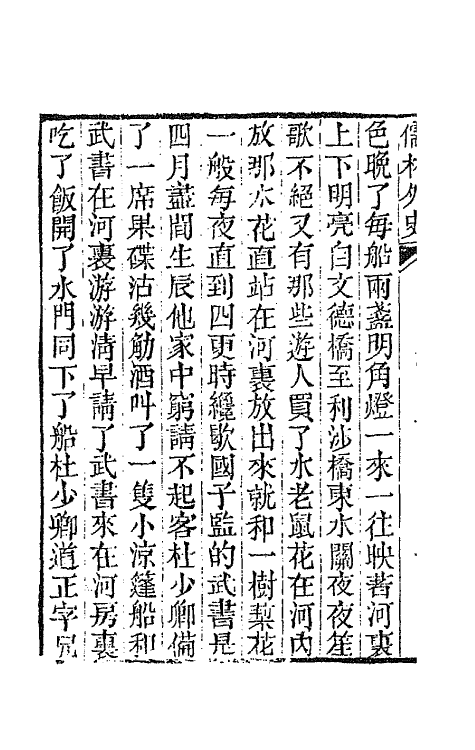 儒林外史
色晚了每船兩盞明角燈一來一往映著河裏
上下明亮自文德橋至利涉橋東水關夜夜笙
歌不絕又有那些遊人買了水老鼠花在河內
放那水花直站在河裏放出來就和一樹梨花
一般每夜直到四更時纔歇國子監的武書是
四月盡間生辰他家中窮請不起客杜少卿備
了一席果碟沽幾觔酒叫了一隻小涼篷船和
武書在河裏游游清早請了武書來在河房裏
吃了飯開了水門同下了船杜少卿道正字兄